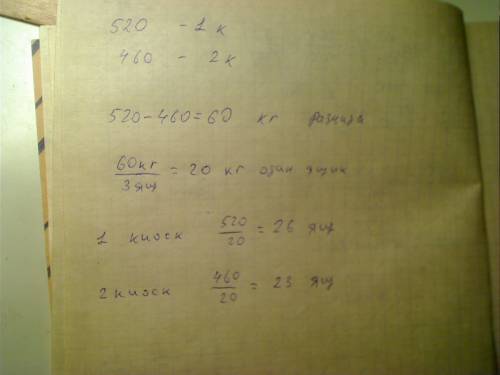 520 - 1 к
460 - 2к
520-460=60 кг разница
60кг/3ящ = 20 кг один ящик
1 киоск 520/20 = 26 ящ
2 киоск 460/20 = 23 ящ